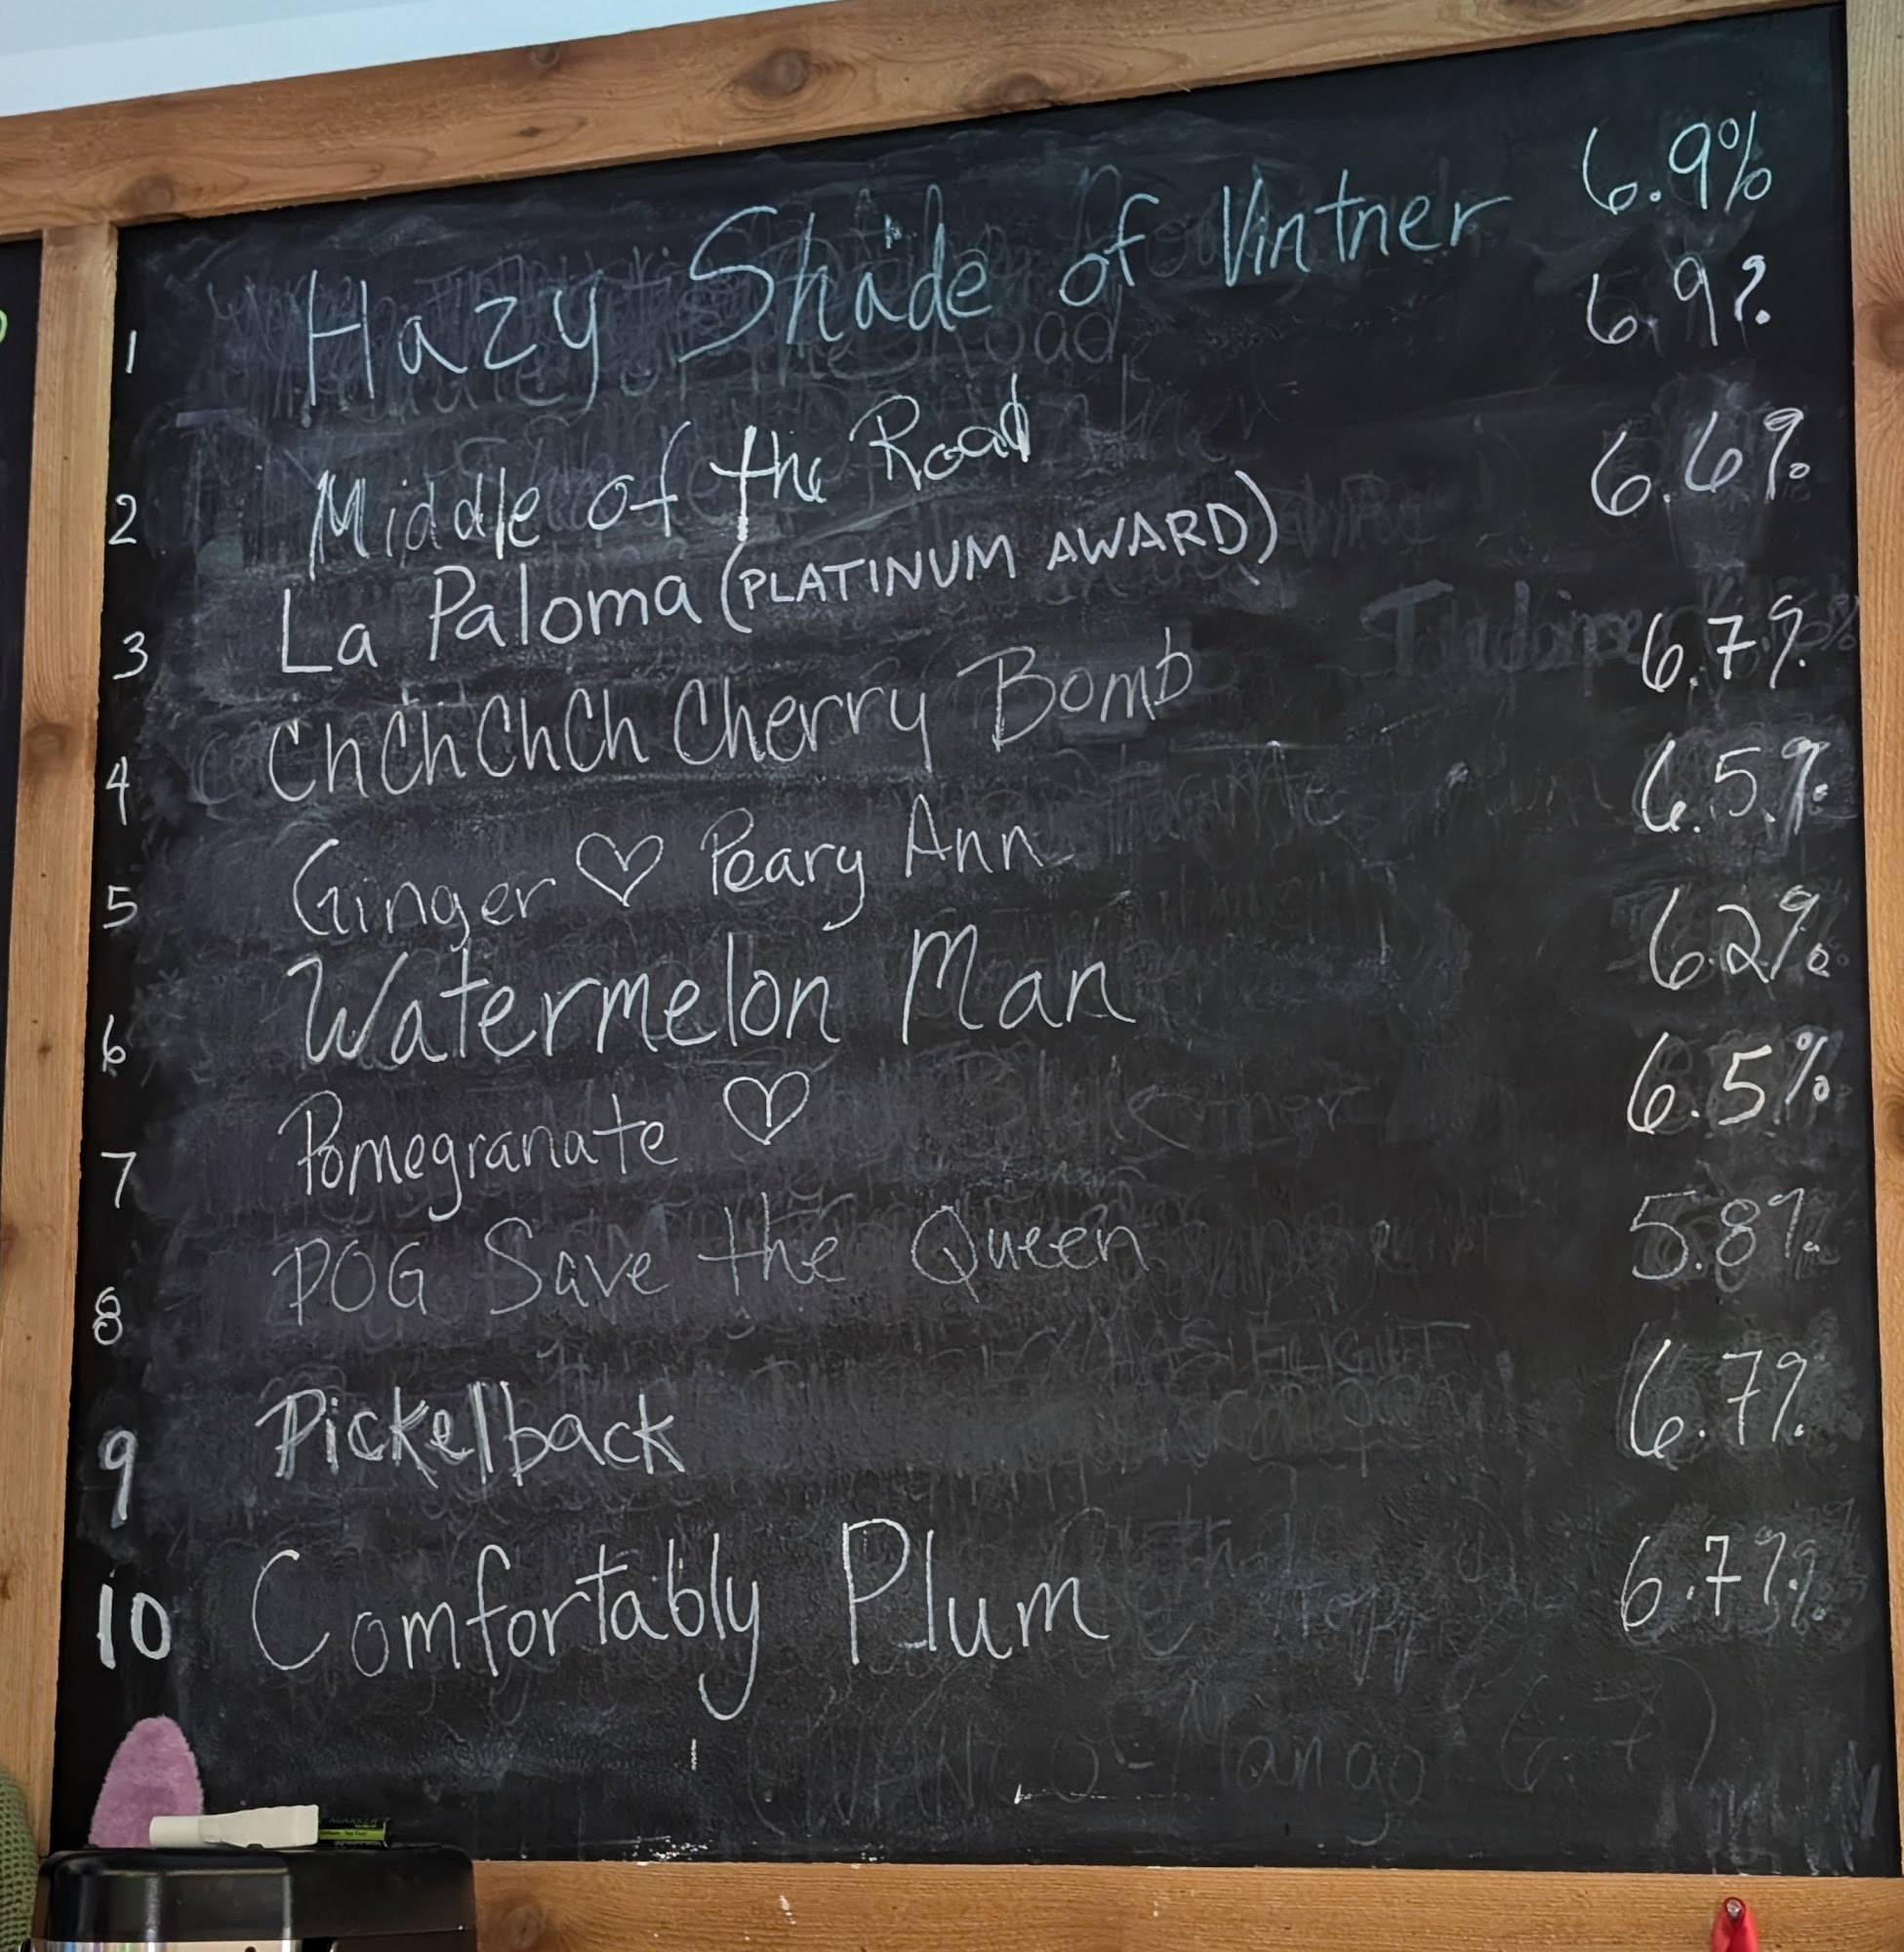 1 Hazy Shade of Vintner 6.9%
2 Middle of the Road 6.9%
3 La Paloma (PLATINUM AWARD) 6.6%
4 ChChChCh Cherry Bomb 6.7%
5 Ginger ♡ Peary Ann 6.5%
6 Watermelon Man 6.2%
7 Pomegranate ♡ 6.5%
8 POG Save the Queen 5.8%
9 Pickelback 6.7%
10 Comfortably Plum 6.7%